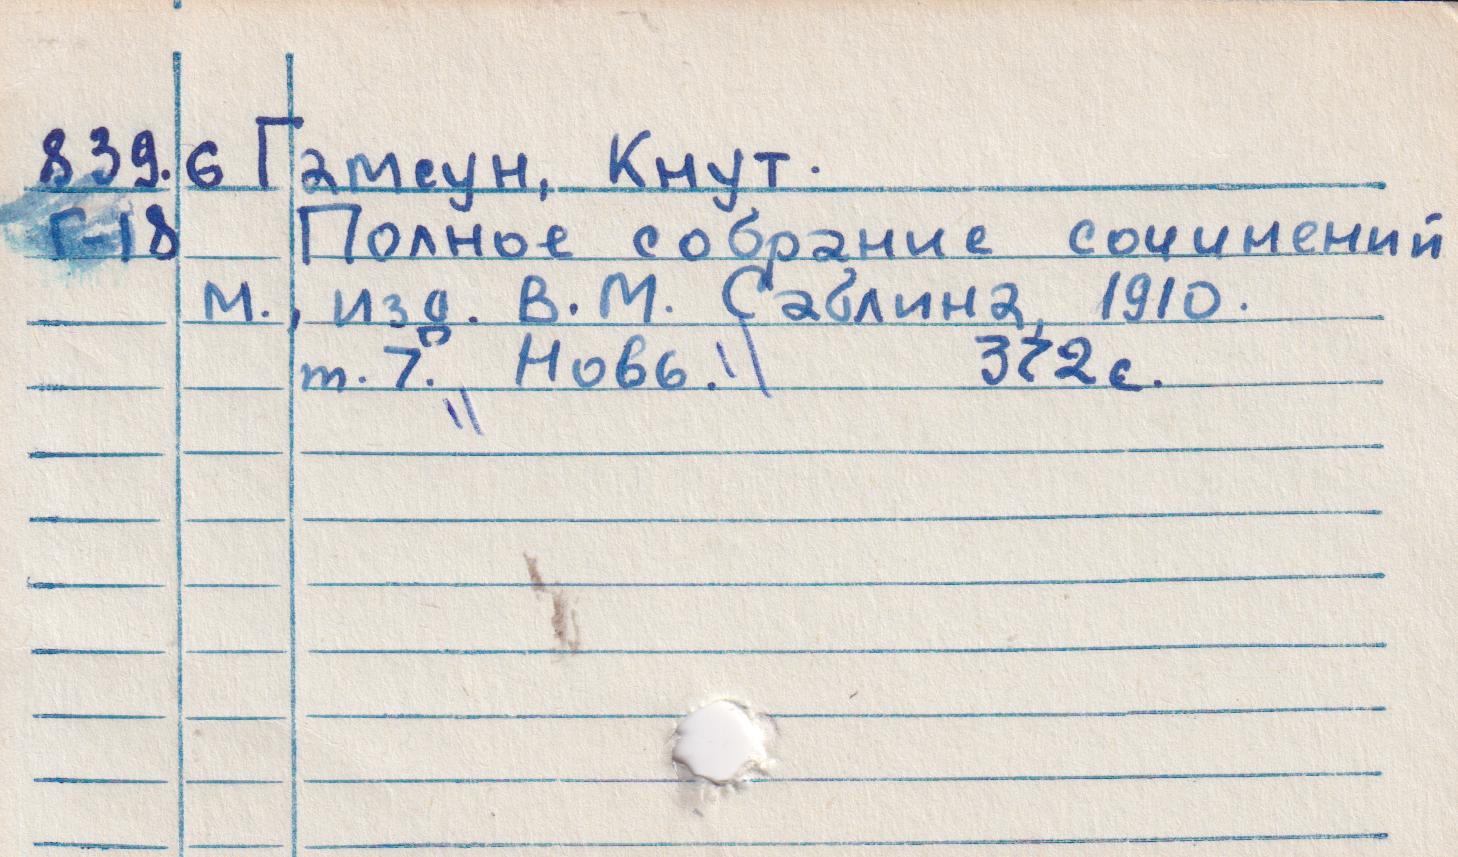 839.6 Гамсун, Кнут.
Г-18 Полное собрание сочинений
М., изд. В.М. Саблина, 1910.
т. 7. "Новь." 372с.